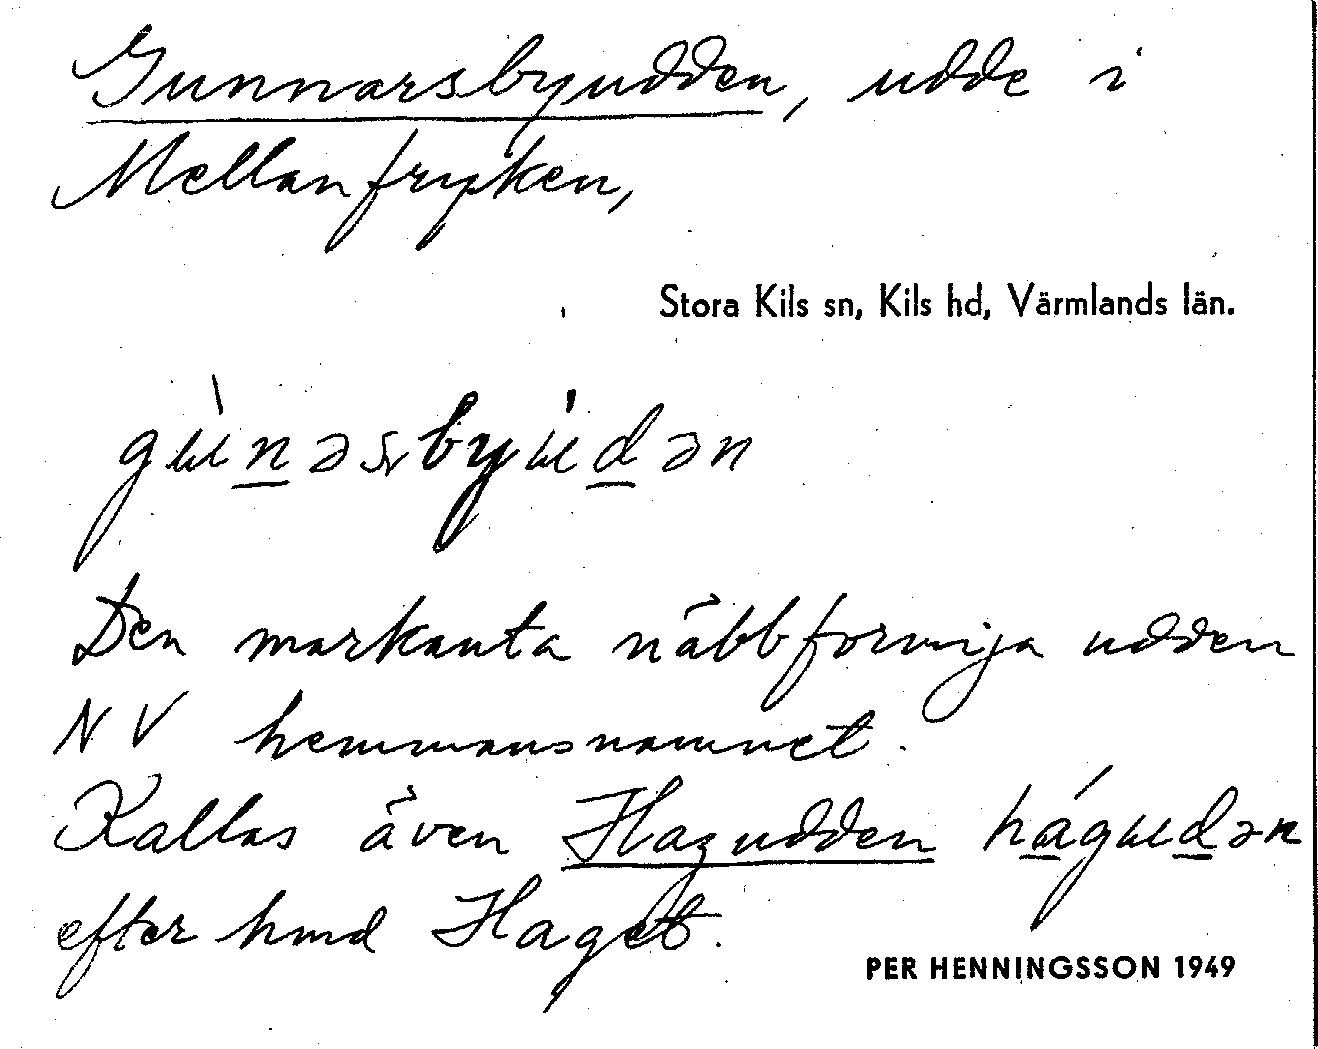 Gunnarsbyudden, udde i
Mellanfryken,
Stora Kils sn, Kils hd, Värmlands län.
Den markanta näbbformiga udden
NV hemmansnamnet.
Kallas även Hagudden hágudən
efter hmd Haget.
PER HENNINGSSON 1949